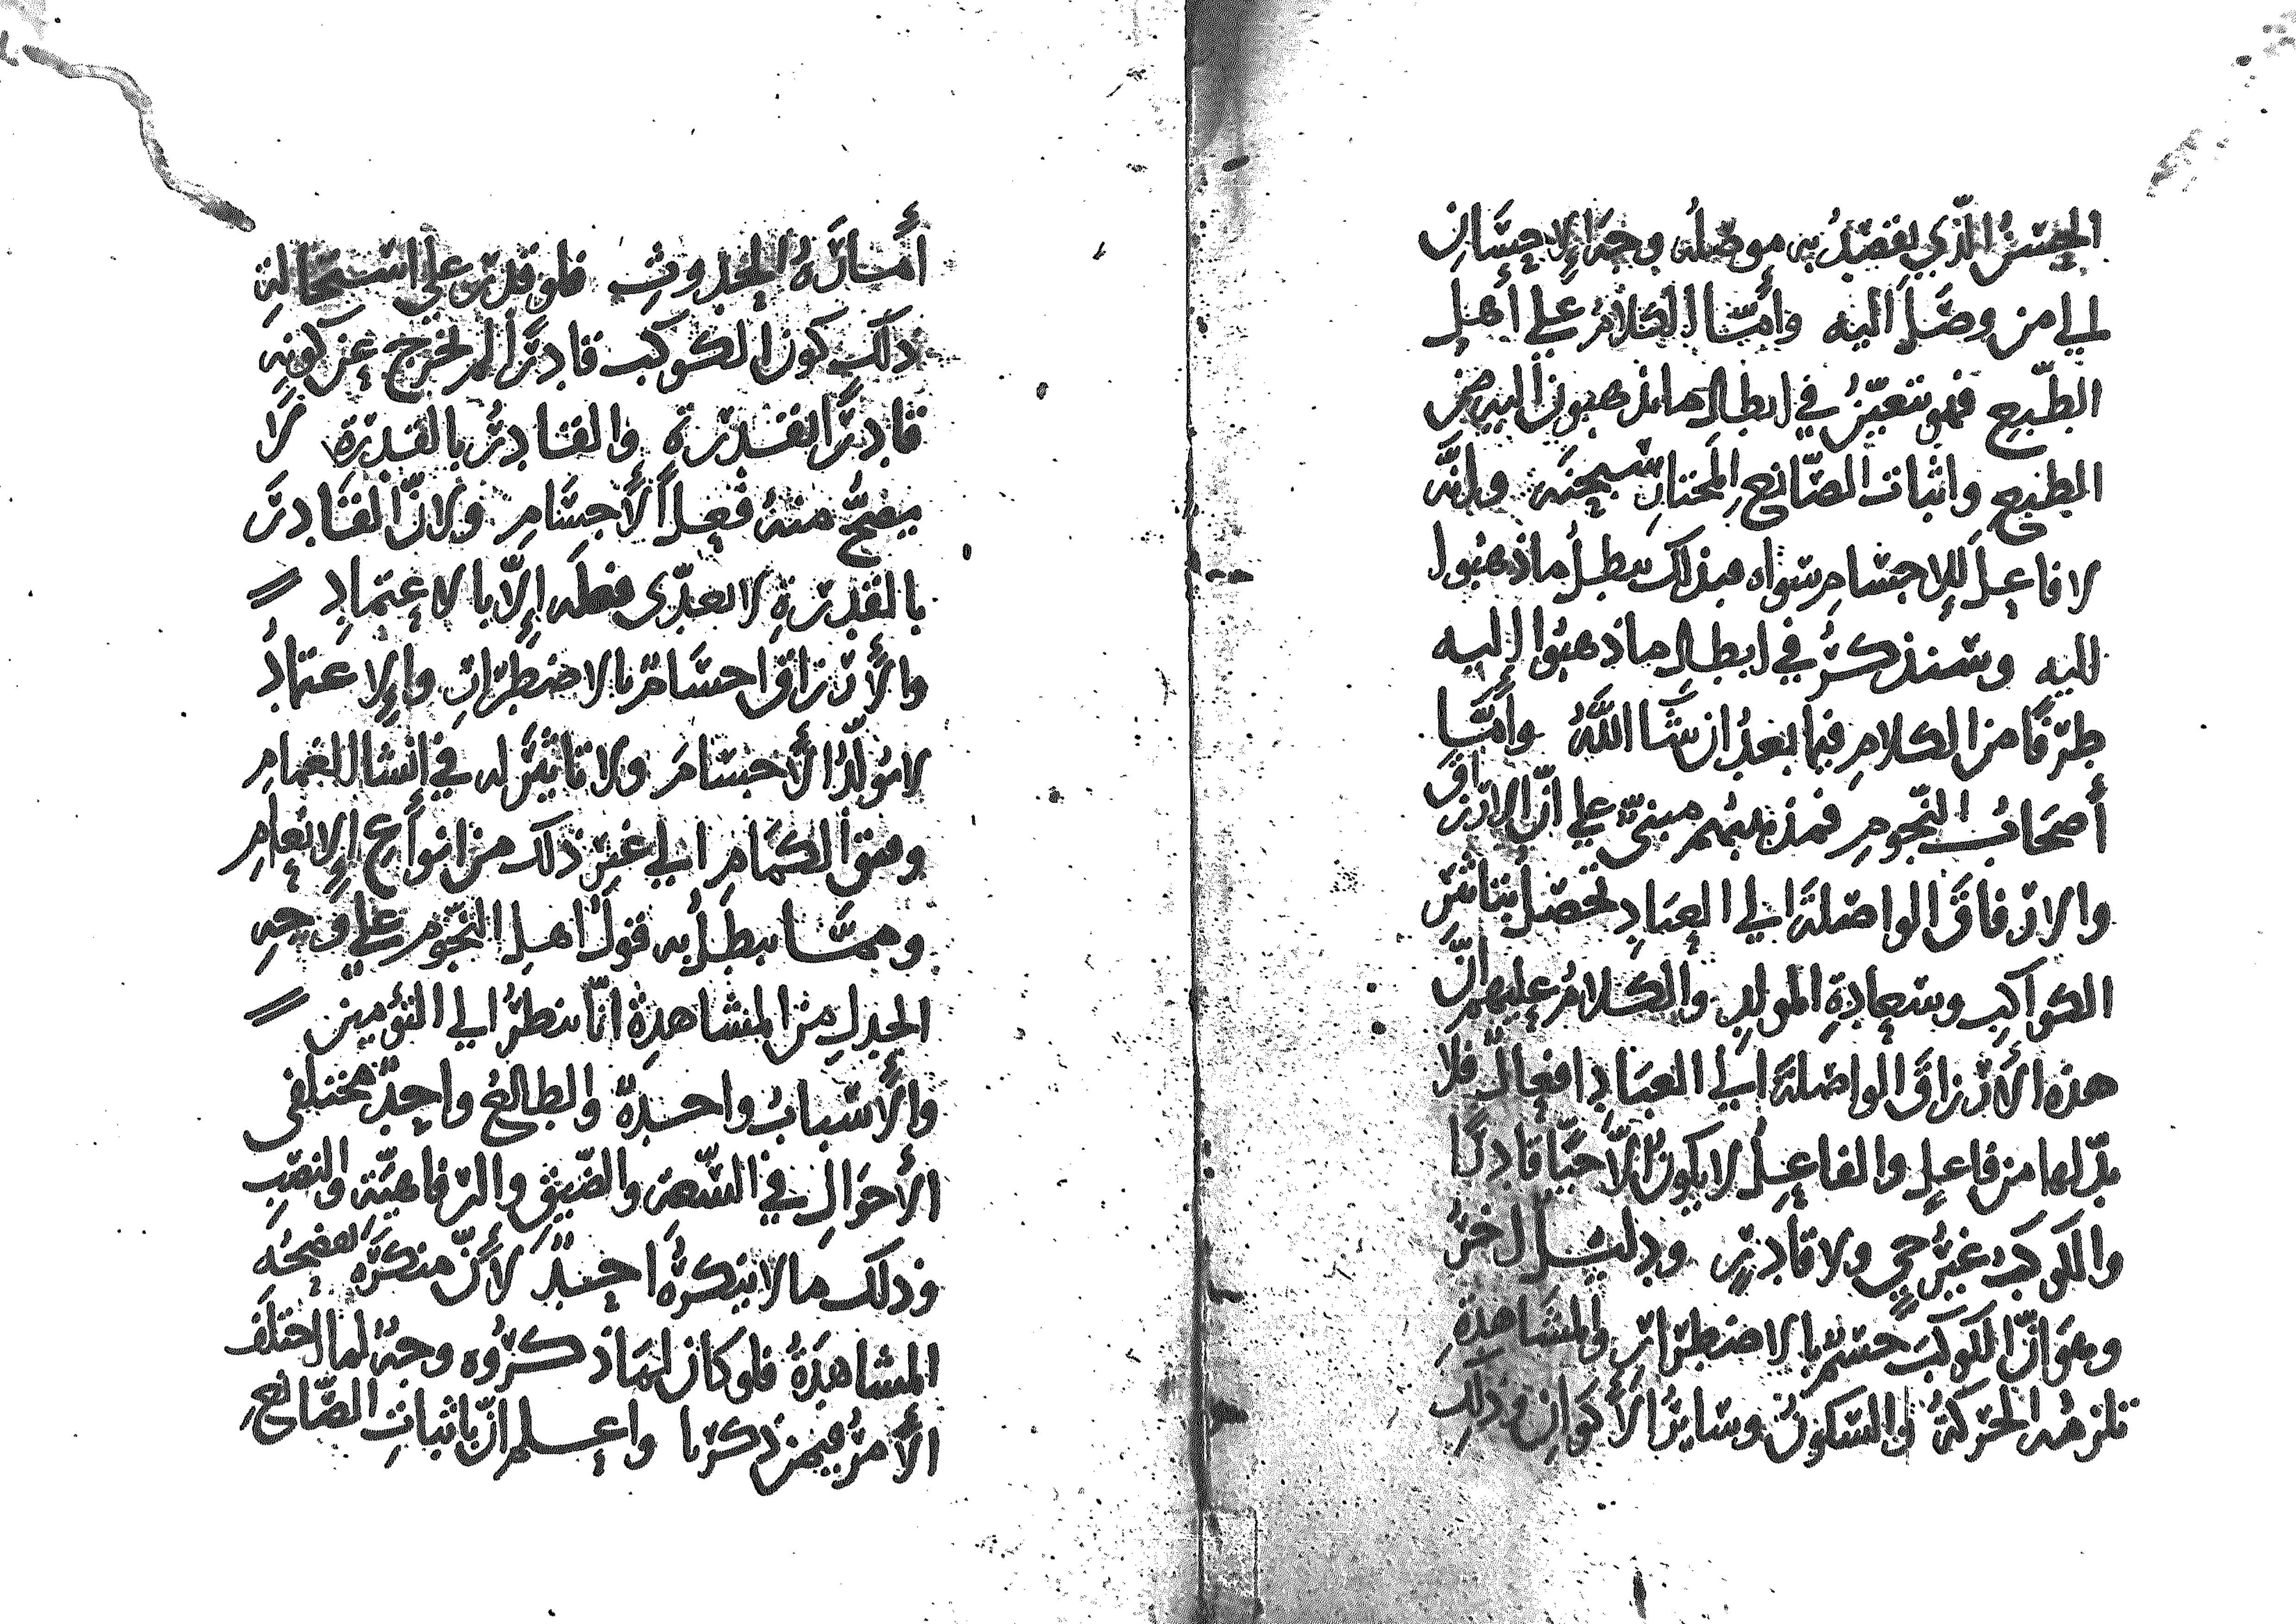 الحسن الذي يقصد به موصله وجه الإحسان
إلى من وصل اليه وأمّا الكلام على أهل
الطّبع فهو يتعيّن في ابطال ما يذهبون اليه من
الطبع واثبات الصّانع المختار سبحنه وانّه
لا فاعل للاجسام سواه فبذلك يبطل ما ذهبوا
إليه وسنذكر في ابطال ما ذهبوا إليه
طرفًا من الكلام فيما بعد ان شا اللّه وأمّا
أصحاب النّجوم فمذهبهم مبنيّ على انّ الارزاق
والارفاق الواصلة الى العباد تحصل بتاثير
الكواكب وسعادة المولد والكلام عليهم انّ
هذه الأرزاق الواصلة الى العباد افعال فلا
بدّ لها من فاعل والفاعل لا يكون إلاّ حيّا قادرًا
والكوكب غير حي ولا قادر ودليل اخر
وهو انّ الكوكب جسم بالاضطرار والمشاهدة
تلزمه الحركة والسكون وساير الأكوان وذلك
أمارة الحدوث فلو قدر على استحالة
ذلك كون الكوكب قادرًا لم يخرج عن كونه
قادرًا بقدرة والقادر بالقدرة لا
يصحّ منه فعل الأجسام ولانّ القادر
بالقدرة لا يعدّى فعله إلاّ بالاعتماد
والأرزاق اجسام بالاضطرار والاعتماد
لا يولّد الأجسام ولا تاثير له في انشا الغمام
وهو الكمام الى غير ذلك من انواع الإنعام
وممّا يبطل به قول اهل النّجوم على وجه
الجدل من المشاهدة انّا ننظر الى التؤمين
والأسباب واحدة والطالع واحد مختلفى
الأحوال في السّعة والضّيق والرفاهيّة والنصب
وذلك ما لا ينكره احد لأنّ منكره تفضحه
المشاهدة فلو كان لما ذكروه وجه لما اختلف
الأمر فيمن ذكرنا واعلم انّ باثبات الصّانع